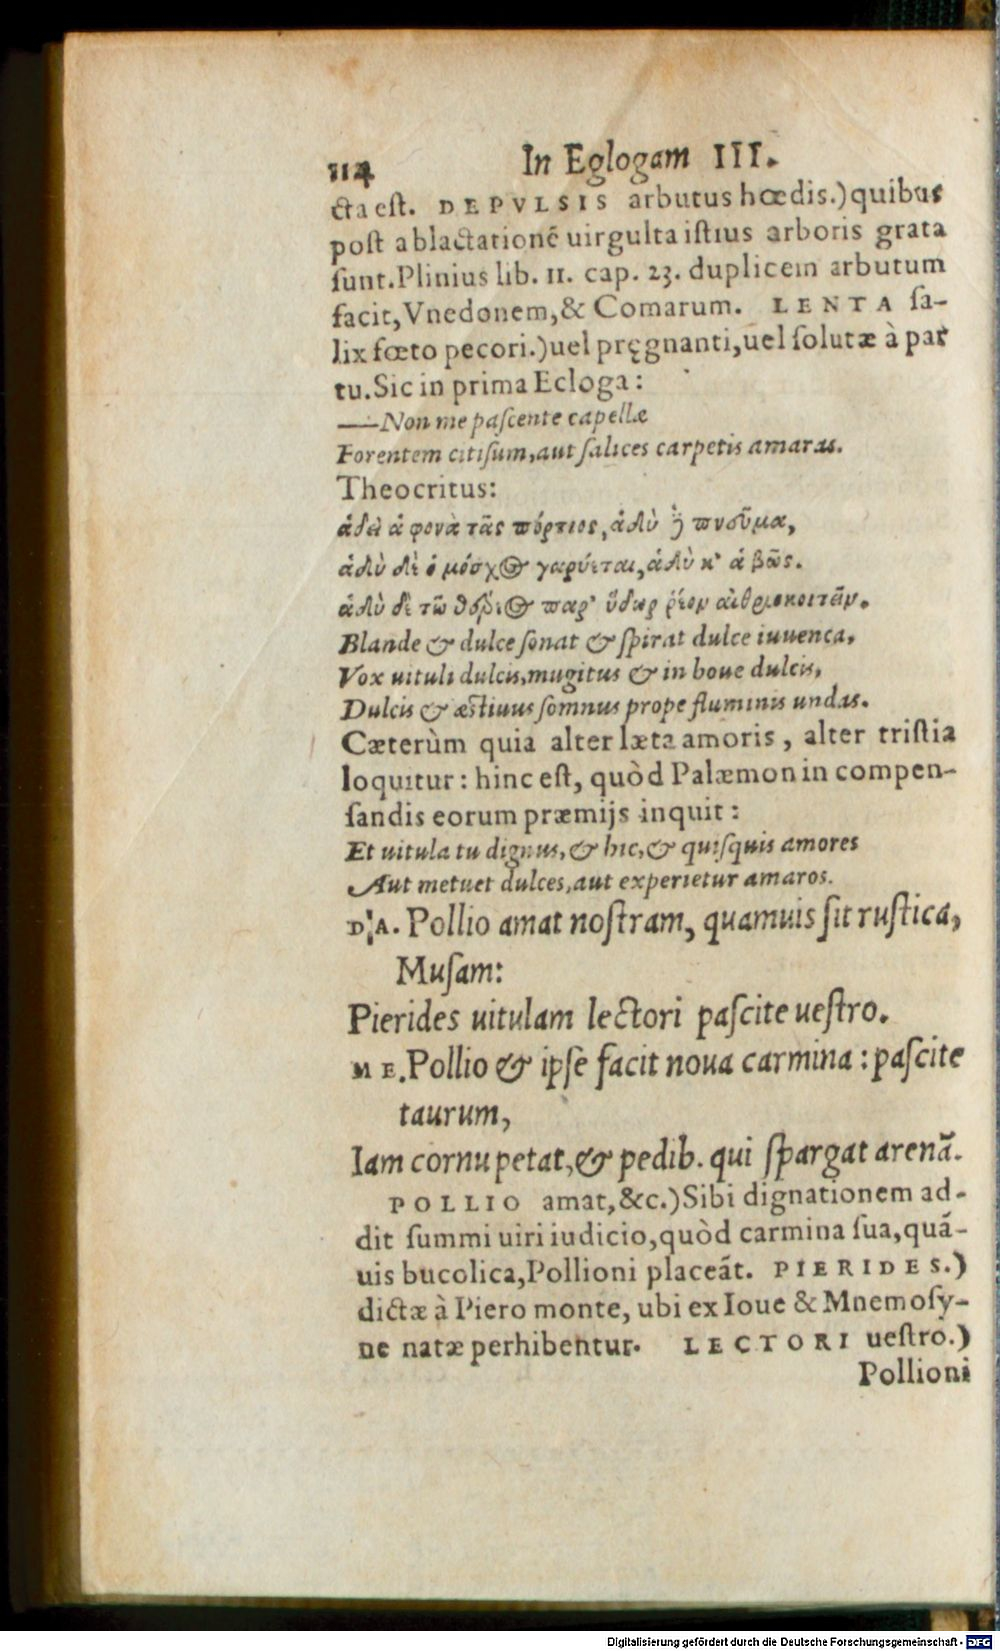 114 In Eglogam III.
cta est. DEPVLSIS arbutus hœdis.) quibus
post ablactationẽ uirgulta istius arboris grata
sunt. Plinius lib. 11. cap. 23. duplicem arbutum
facit, Vnedonem, & Comarum. LENTA sa-
lix fœto pecori.) uel pręgnanti, uel solutæ à par
tu. Sic in prima Ecloga:
—Non me pascente capellæ
Forentem citisum, aut salices carpetis amaras.
Theocritus:
ἁδεῖ ἁ φονὰ τᾶς πόρτιος, ἁδὺ τὸ πνεῦμα,
ἁδὺ δὲ ὁ μόσχος γαρύεται, ἁδὺ κ' ἁ βῶς.
ἁδὺ δὲ τῶ θέρεος παρ' ὕδωρ ῥέον αἰθριοκοιτεῖν.
Blande & dulce sonat & spirat dulce iuuenca,
Vox uituli dulcis, mugitus & in boue dulcis,
Dulcis & æstiuus somnus prope fluminis undas.
Cæterùm quia alter læta amoris, alter tristia
loquitur: hinc est, quòd Palæmon in compen-
sandis eorum præmijs inquit:
Et uitula tu dignus, & hic, & quisquis amores
Aut metuet dulces, aut experietur amaros.
DA. Pollio amat nostram, quamuis sit rustica,
Musam:
Pierides uitulam lectori pascite uestro.
ME. Pollio & ipse facit noua carmina: pascite
taurum,
Iam cornu petat, & pedib. qui spargat arenã.
POLLIO amat, &c.) Sibi dignationem ad-
dit summi uiri iudicio, quòd carmina sua, quã-
uis bucolica, Pollioni placeãt. PIERIDES.)
dictæ à Piero monte, ubi ex Ioue & Mnemosy-
ne natæ perhibentur. LECTORI uestro.)
Pollioni
Digitalisierung gefördert durch die Deutsche Forschungsgemeinschaft - DFG